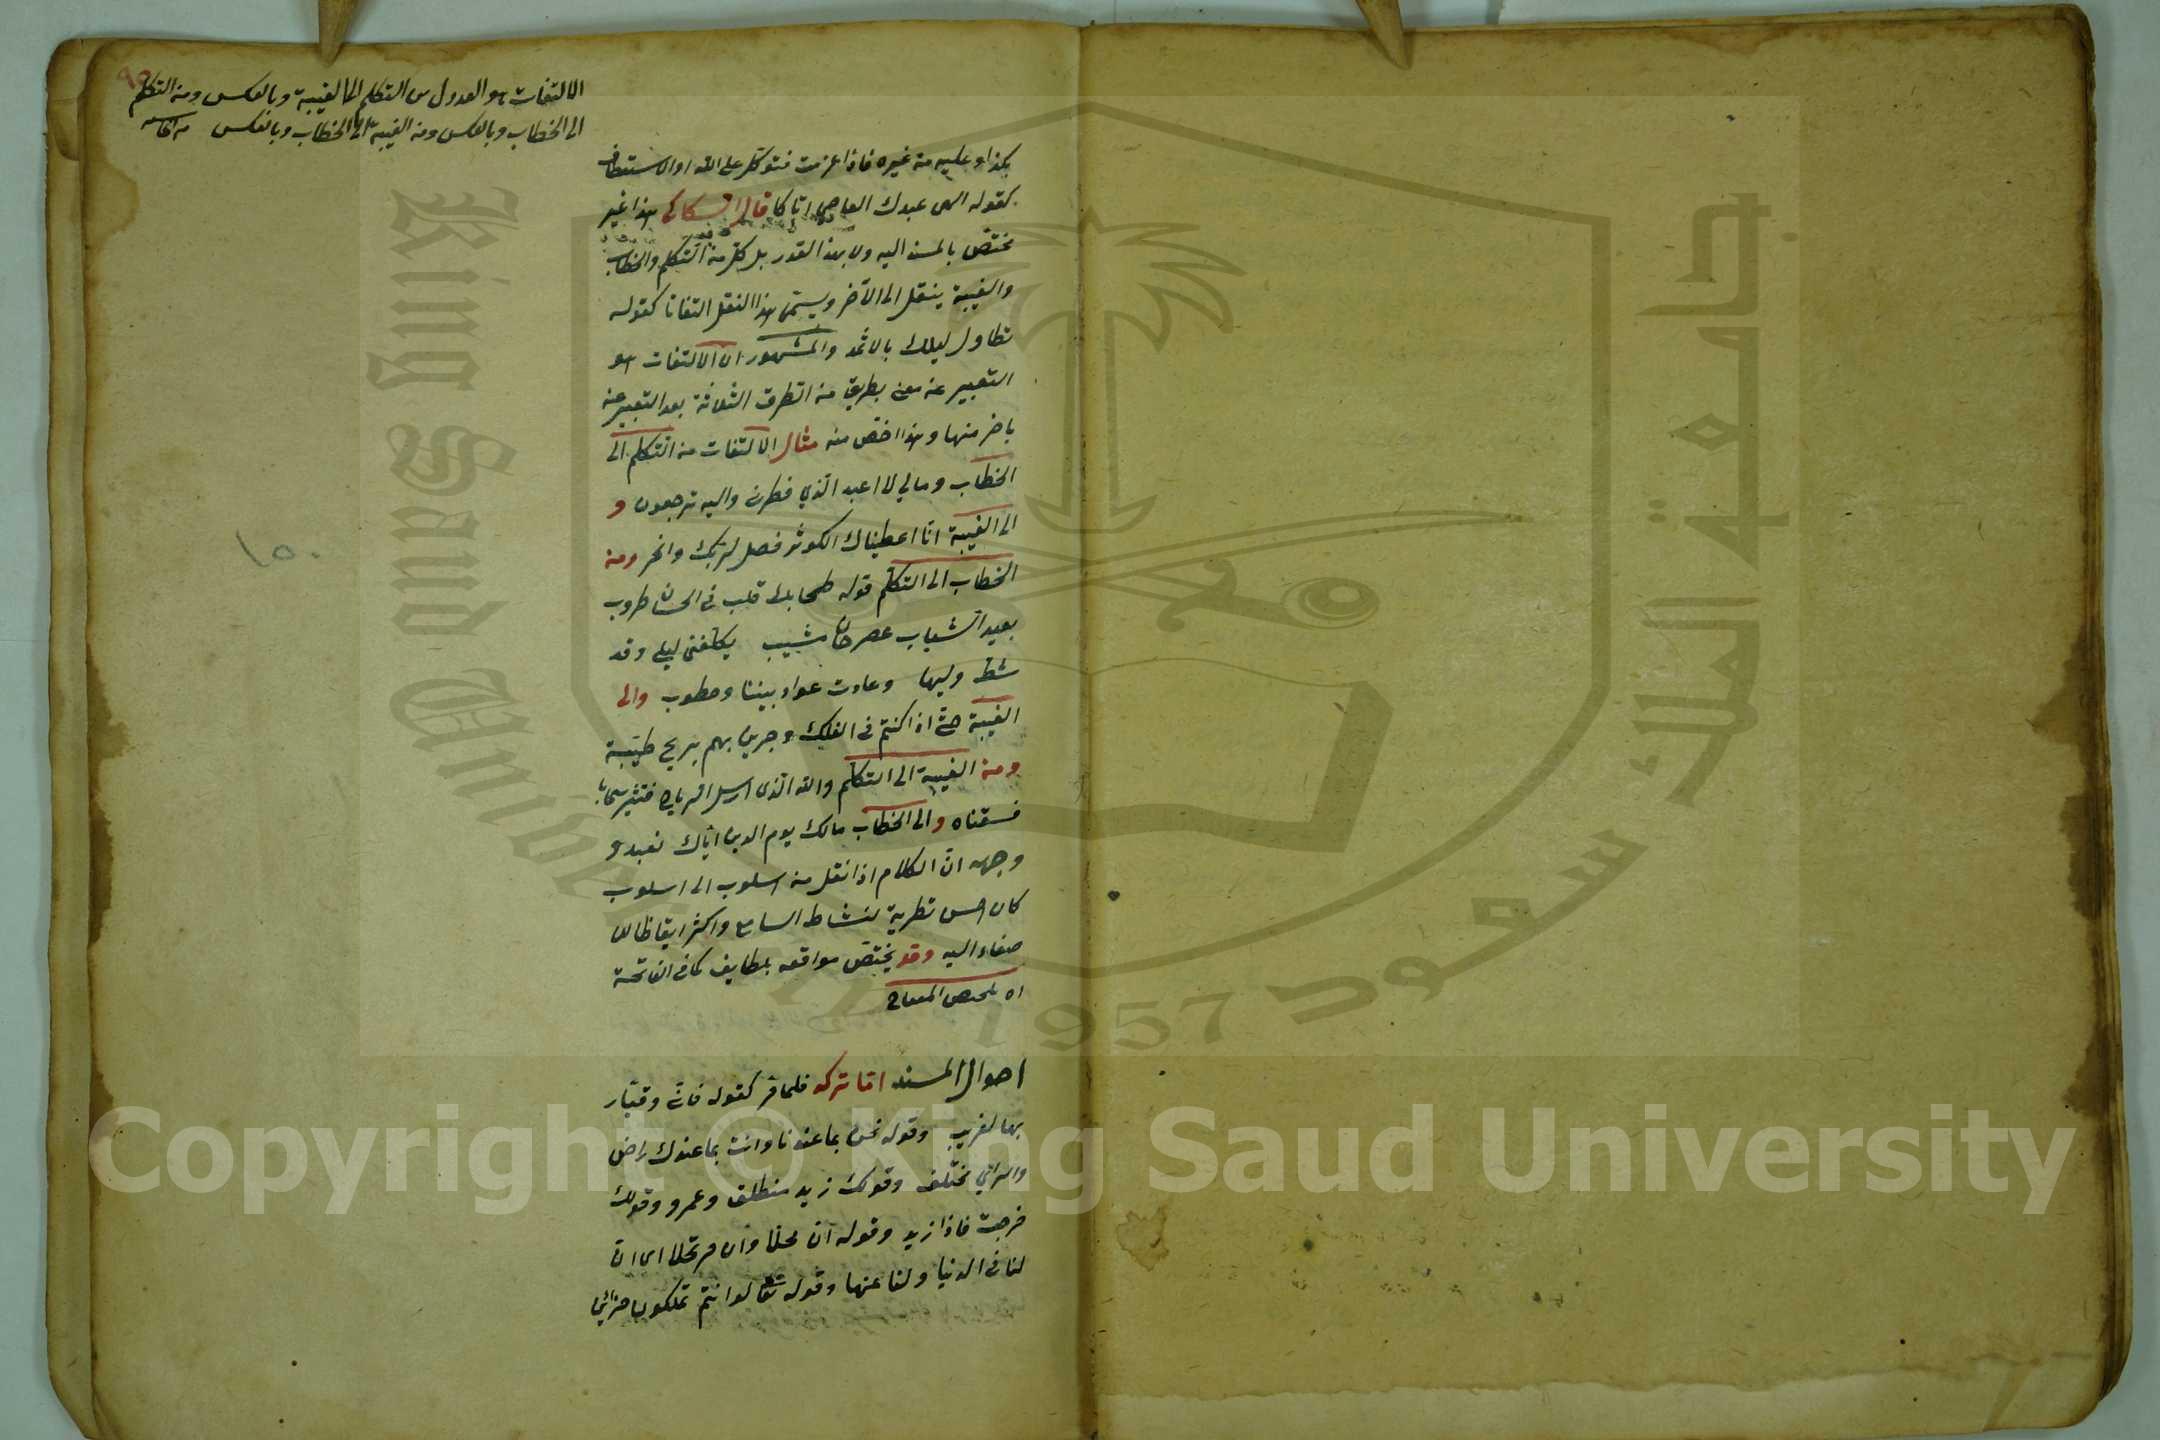 الالتفات هو العدول من التكلم الى الغيبة وبالعكس ومن التكلم
الى الخطاب وبالعكس ومن الغيبة الى الخطاب وبالعكس
بكذا وعليه من غيره فاذا عزمت فتوكل على الله او الاستعطاف
كقوله الهى عبدك العاصى اتاكا قال السكاكى هذا غير
مختص بالمسند اليه ولا بهذا القدر بل كل من التكلم والخطاب
والغيبة ينقل الى الآخر ويسمى هذا النقل التفاتا كقوله
تطاول ليلك بالاثمد والمشهور ان الالتفات هو
التعبير عن معنى بطريق من الطرق الثلاثة بعد التعبير عنه
باخر منها وهذا اخص منه مثال الالتفات من التكلم الى
الخطاب ومالي لا اعبد الذي فطرنى واليه ترجعون و
الى الغيبة انا اعطيناك الكوثر فصل لربك وانحر ومن
الخطاب الى التكلم قوله طحا بك قلب فى الحسان طروب
بعيد الشباب عصر حان مشيب يكلفنى ليلى وقد
شط وليها وعادت عواد بيننا وخطوب والى
الغيبة حتى اذا كنتم فى الفلك وجرين بهم بريح طيبة
ومن الغيبة الى التكلم والله الذى ارسل الرياح فتثير سحابا
فسقناه والى الخطاب مالك يوم الدين اياك نعبد و
وجهه ان الكلام اذا نقل من اسلوب الى اسلوب
كان احسن تطرية لنشاط السامع واكثر ايقاظا للا
صغاء اليه وقد يختص مواقعه بلطايف كما فى الفاتحة
اه تلخيص المعانى
احوال المسند اما تركه فلما مر كقوله فانى وقيار
بها لغريب وقوله نحن بما عندنا وانت بما عندك راض
والراي مختلف وقولك زيد منطلق وعمرو وقولك
خرجت فاذا زيد وقوله ان محلا وان مرتحلا اى ان
لنا فى الدنيا ولنا عنها وقوله تعالى لو انتم تملكون خزائن
١٥٠
جامعة الملك سعود
King Saud University
1957
Copyright © King Saud University